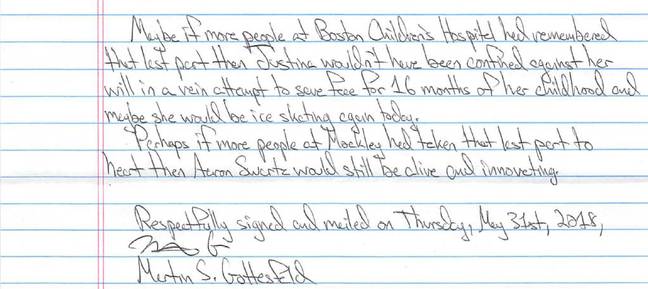 Maybe if more people at Boston Children's Hospital had remembered
that last part then Justina wouldn't have been confined against her
will in a vein attempt to save face for 16 months of her childhood and
maybe she would be ice skating again today.
Perhaps if more people at Moakley had taken that last part to
heart then Aaron Swartz would still be alive and innovating.
Respectfully signed and mailed on Thursday, May 31st, 2018,
Martin S. Gottesfeld